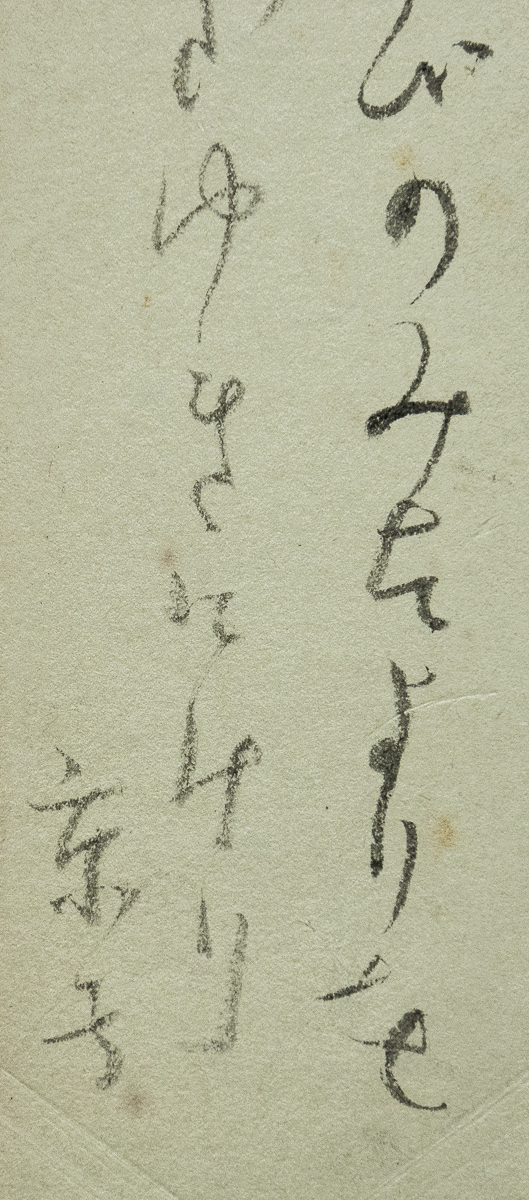 びのみちよりも
ゆきにけり
京子